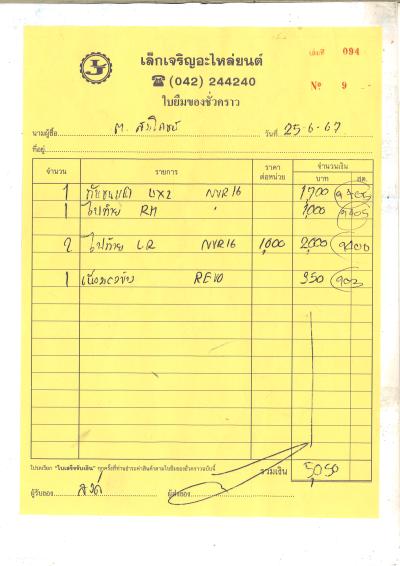 เล็กเจริญอะไหล่ยนต์
เล่มที่ 094
☎ (042) 244240
Nº 9
ใบยืมของชั่วคราว
นามผู้ซื้อ วันที่ 25-6-67
ที่อยู่
จำนวน รายการ ราคาต่อหน่วย จำนวนเงิน
บาท สต.
1 NVR16 1700
1 ไฟท้าย RH " 1,000
2 ไฟท้าย LR NVR16 1,000 2,000
1 REVO 350
โปรดเรียก "ใบเสร็จรับเงิน" ทุกครั้งที่ท่านชำระค่าสินค้าตามใบยืมของชั่วคราวฉบับนี้
รวมเงิน 5,050
ผู้รับของ ผู้ส่งของ